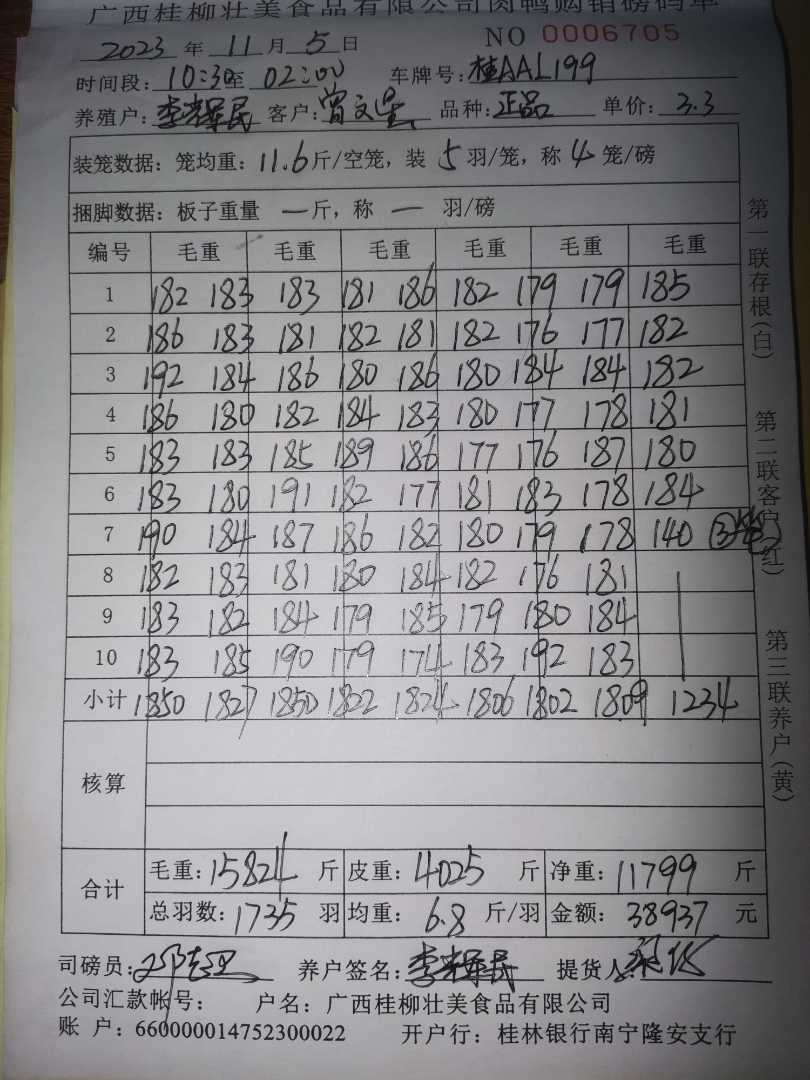 广西桂柳壮美食品有限公司肉鸭购销磅码单
2023 年 11 月 5 日 NO 0006705
时间段: 10:30至 02:00 车牌号: 桂AAL199
养殖户: 李辉民 客户: 曾文 品种: 正品 单价: 3.3
装笼数据: 笼均重: 11.6斤/空笼, 装 5 羽/笼, 称 4 笼/磅
捆脚数据: 板子重量 一斤, 称 一 羽/磅
编号 毛重 毛重 毛重 毛重 毛重 毛重
1 182 183 183 181 186 182 179 179 185
2 186 183 181 182 181 182 176 177 182
3 192 184 186 180 186 180 184 184 182
4 186 180 182 184 183 180 177 178 181
5 183 183 185 189 186 177 176 187 180
6 183 180 191 182 177 181 183 178 184
7 190 184 187 186 182 180 179 178 140 ③笼
8 182 183 181 180 184 182 176 181
9 183 182 184 179 185 179 180 184
10 183 185 190 179 174 183 192 183
小计 1850 1827 1850 1822 1824 1806 1802 1809 1234
核算
合计 毛重: 15824 斤 皮重: 4025 斤 净重: 11799 斤
总羽数: 1735 羽 均重: 6.8 斤/羽 金额: 38937 元
司磅员: 养户签名: 李辉民 提货人:
公司汇款帐号: 户名: 广西桂柳壮美食品有限公司
账 户: 660000014752300022 开户行: 桂林银行南宁隆安支行
第一联存根(白) 第二联客户(红) 第三联养户(黄)